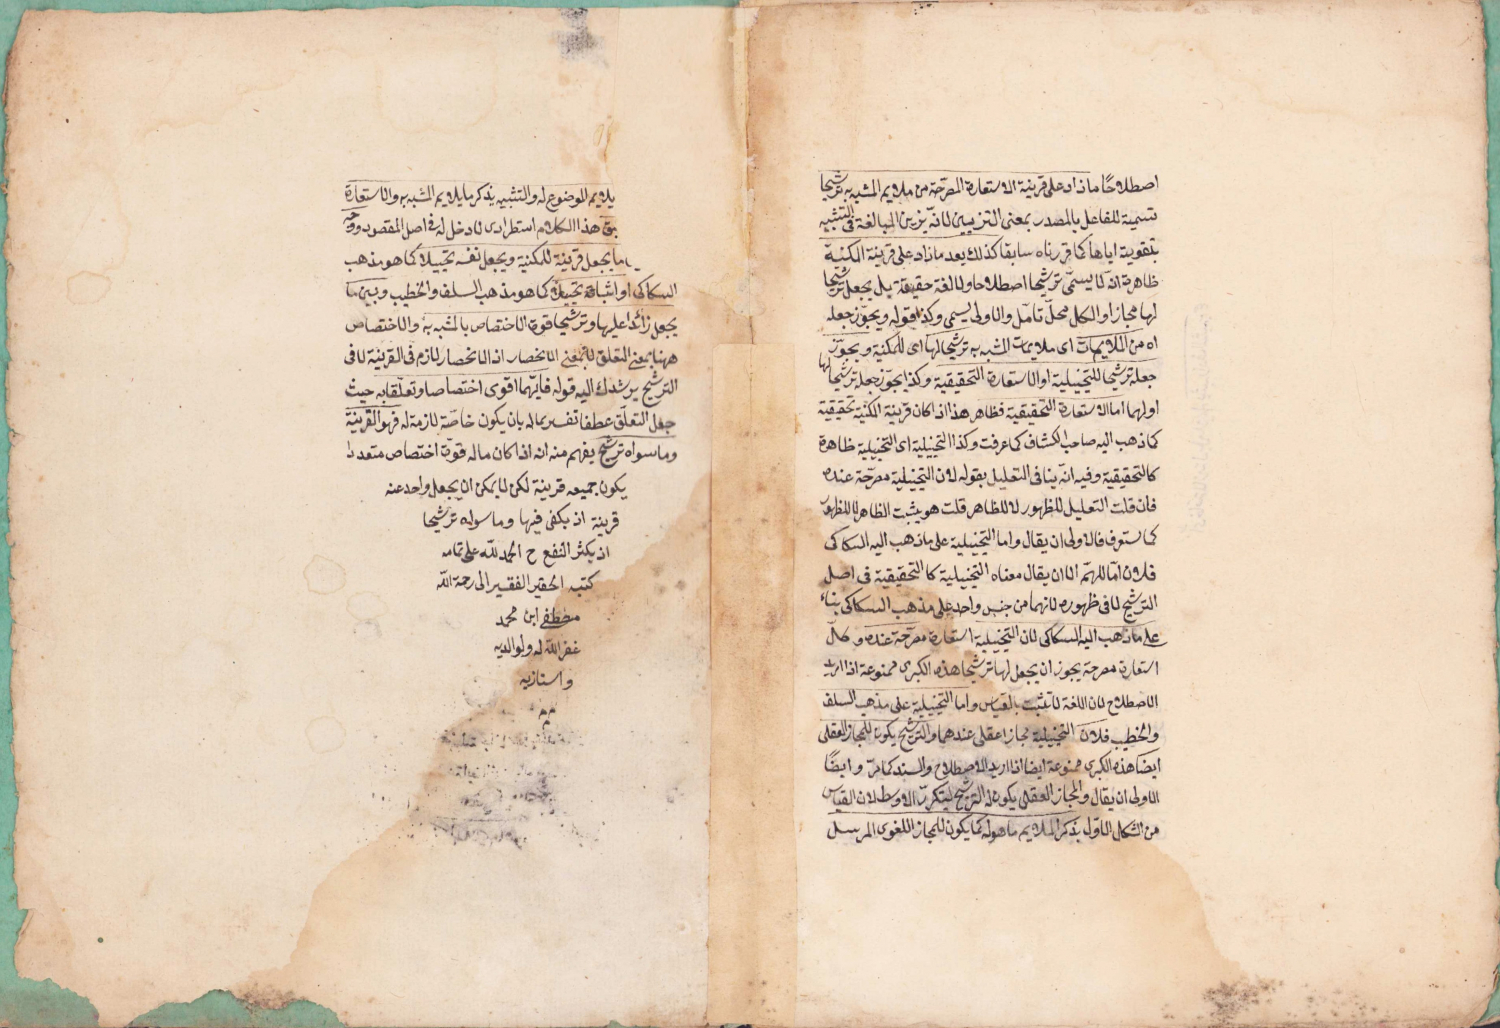 اصطلاحا ما زاد على قرينة الاستعارة المصرحة من ملايم المشبه به ترشيحا
تسمية للفاعل بالمصدر بمعنى التزيين لانه يزين المبالغة فى التشبيه
بتقوية اياها كما قررناه سابقا كذلك يعد ما زاد على قرينة المكنية
ظاهره انه لا يسمى ترشيحا اصطلاحا ولا لغة حقيقة بل يجعل ترشيحا
لها مجازا والكل محل تامل والاولى يسمى وكذا قوله ويجوز جعله
اه من الملايمات اى ملايمات المشبه به ترشيحا لها اى للمكنية ويجوز
جعله ترشيحا للتخييلية او الاستعارة التحقيقية وكذا يجوز جعله ترشيحا لها
اولهما اما الاستعارة التحقيقية فظاهر هذا اذا كان قرينة المكنية تحقيقية
كما ذهب اليه صاحب الكشاف كما عرفت وكذا التخييلية اى التخييلية ظاهرة
كالتحقيقية وفيه انه ينافى التعليل بقوله لان التخييلية مصرحة عنده
فان قلت التعليل للظهور لا للظاهر قلت هو يثبت الظاهر لا للظهور
كما ستعرف فالاولى ان يقال واما التخييلية على ما ذهب اليه السكاكى
فلان اه اللهم الا ان يقال معناه التخييلية كالتحقيقية فى اصل
الترشيح لا فى ظهوره لانهما من جنس واحد على مذهب السكاكى بناء
على ما ذهب اليه السكاكى لان التخييلية استعارة مصرحة عنده وكل
استعارة مصرحة يجوز ان يجعل لها ترشيحا هذه الكبرى ممنوعة اذا اريد
الاصطلاح لان اللغة لا تثبت بالقياس واما التخييلية على مذهب السلف
والخطيب فلان التخييلية مجاز عقلى عندهما والترشيح يكون للمجاز العقلى
ايضا هذه الكبرى ممنوعة ايضا اذا اريد الاصطلاح والسند كما مر وايضا
الاولى ان يقال والمجاز العقلى يكون له الترشيح ليتكرر الاوسط لان القياس
من الشكل الاول بذكر الملايم ما هو له كما يكون للمجاز اللغوى المرسل
يلايم للموضوع له والتشبيه بذكر ما يلايم المشبه به والاستعارة
هذا الكلام استطرادى لا دخل له فى اصل المقصود ووجه
ما يجعل قرينة للمكنية ويجعل نفسه تخييلا كما هو مذهب
السكاكى او اثباته تخييلا كما هو مذهب السلف والخطيب وبين ما
يجعل زائدا عليها وترشيحا قوة الاختصاص بالمشبه به والاختصاص
ههنا بمعنى التعلق لا بمعنى الانحصار اذ الانحصار لازم فى القرينة لا فى
الترشيح يرشدك اليه قوله فايهما اقوى اختصاصا وتعلقا به حيث
جعل التعلق عطفا تفسير بما له بان يكون خاصة لازمة له فهو القرينة
وما سواه ترشيح يفهم منه انه اذا كان ما له قوة اختصاص متعددا
يكون جميعه قرينة لكن لا يمكن ان يجعل واحد عنه
قرينة اذ يكفى فيها وما سواه ترشيحا
اذ يكثر النفع ح الحمد لله على تمامه
كتبه الحقير الفقير الى رحمة الله
مصطفى ابن محمد
غفر الله له ولوالديه
واستاذيه
م م